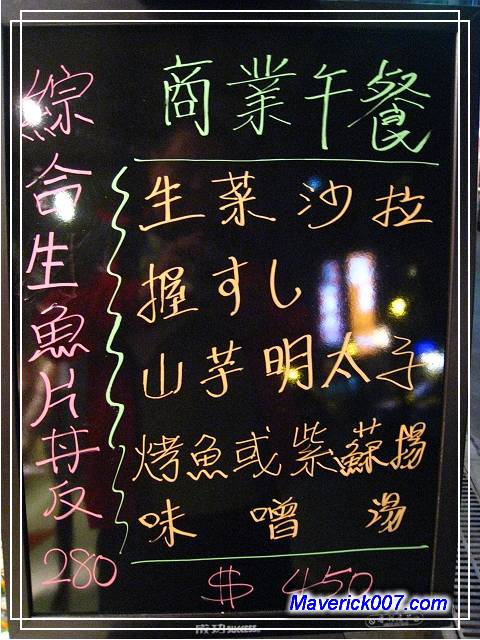 綜合生魚片丼反
280
商業午餐
生菜沙拉
握すし
山芋明太子
烤魚或紫蘇揚
味噌湯
$ 450
Maverick007.com
成功 SUCCESS